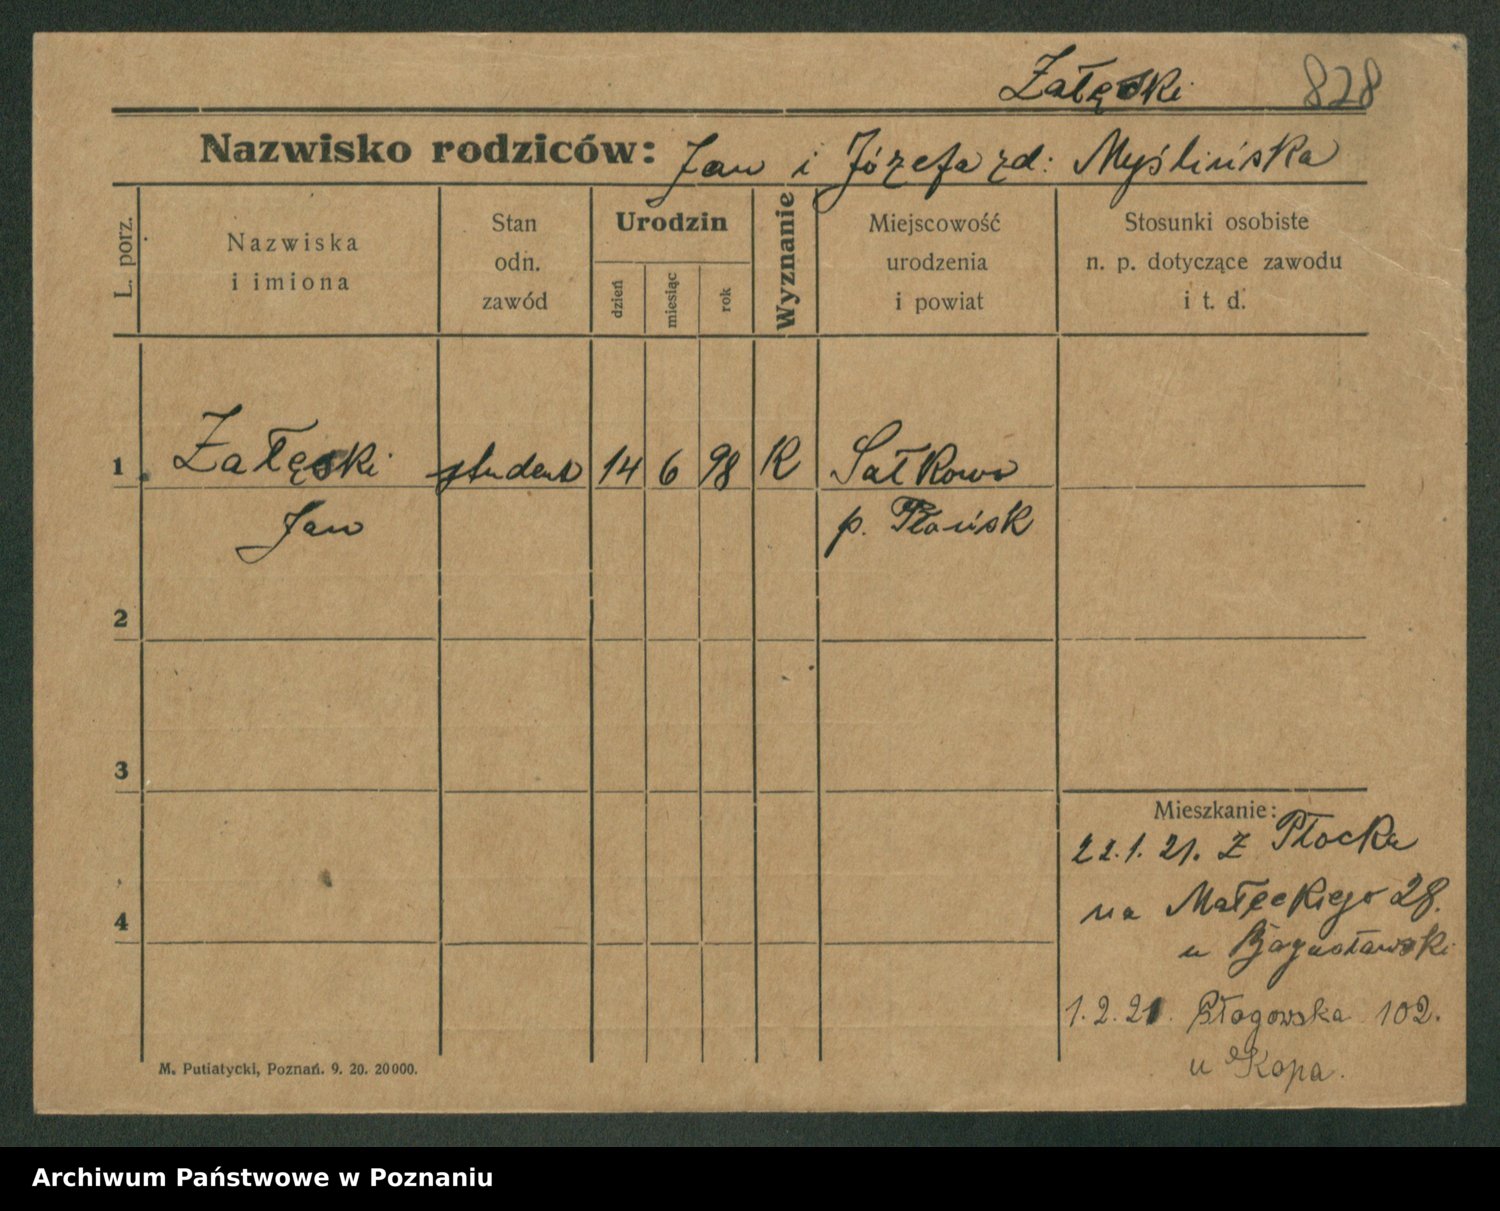 Załęski 828
Nazwisko rodziców: Jan i Józefa zd: Myślińska
L. porz.
Nazwiska
i imiona
Stan
odn.
zawód
Urodzin
dzień
miesiąc
rok
Wyznanie
Miejscowość
urodzenia
i powiat
Stosunki osobiste
n. p. dotyczące zawodu
i t. d.
1 Załęski student 14 6 98 K Sałkowo
Jan p. Płońsk
2
3
4
Mieszkanie:
22.1.21. z Płocka
na Małeckiego 28.
u Bogusławski
1.2.21. 102.
u Kopa.
M. Putiatycki, Poznań. 9. 20. 20000.
Archiwum Państwowe w Poznaniu